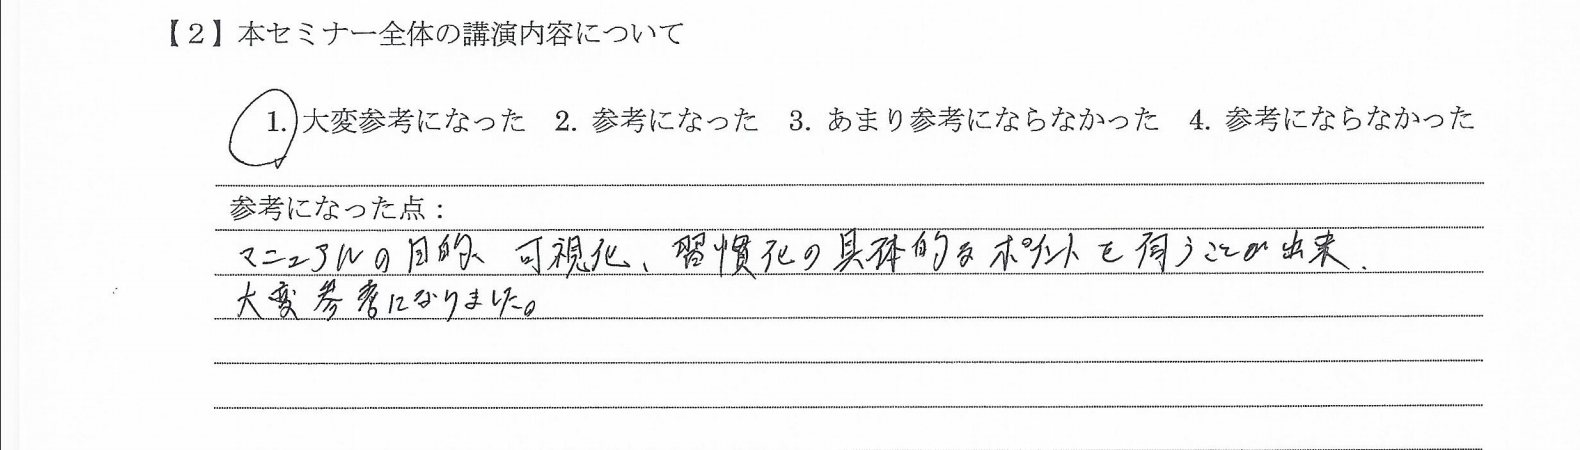 【2】本セミナー全体の講演内容について
1. 大変参考になった 2. 参考になった 3. あまり参考にならなかった 4. 参考にならなかった
参考になった点：
マニュアルの目的、可視化、習慣化の具体的なポイントを伺うことが出来、
大変参考になりました。